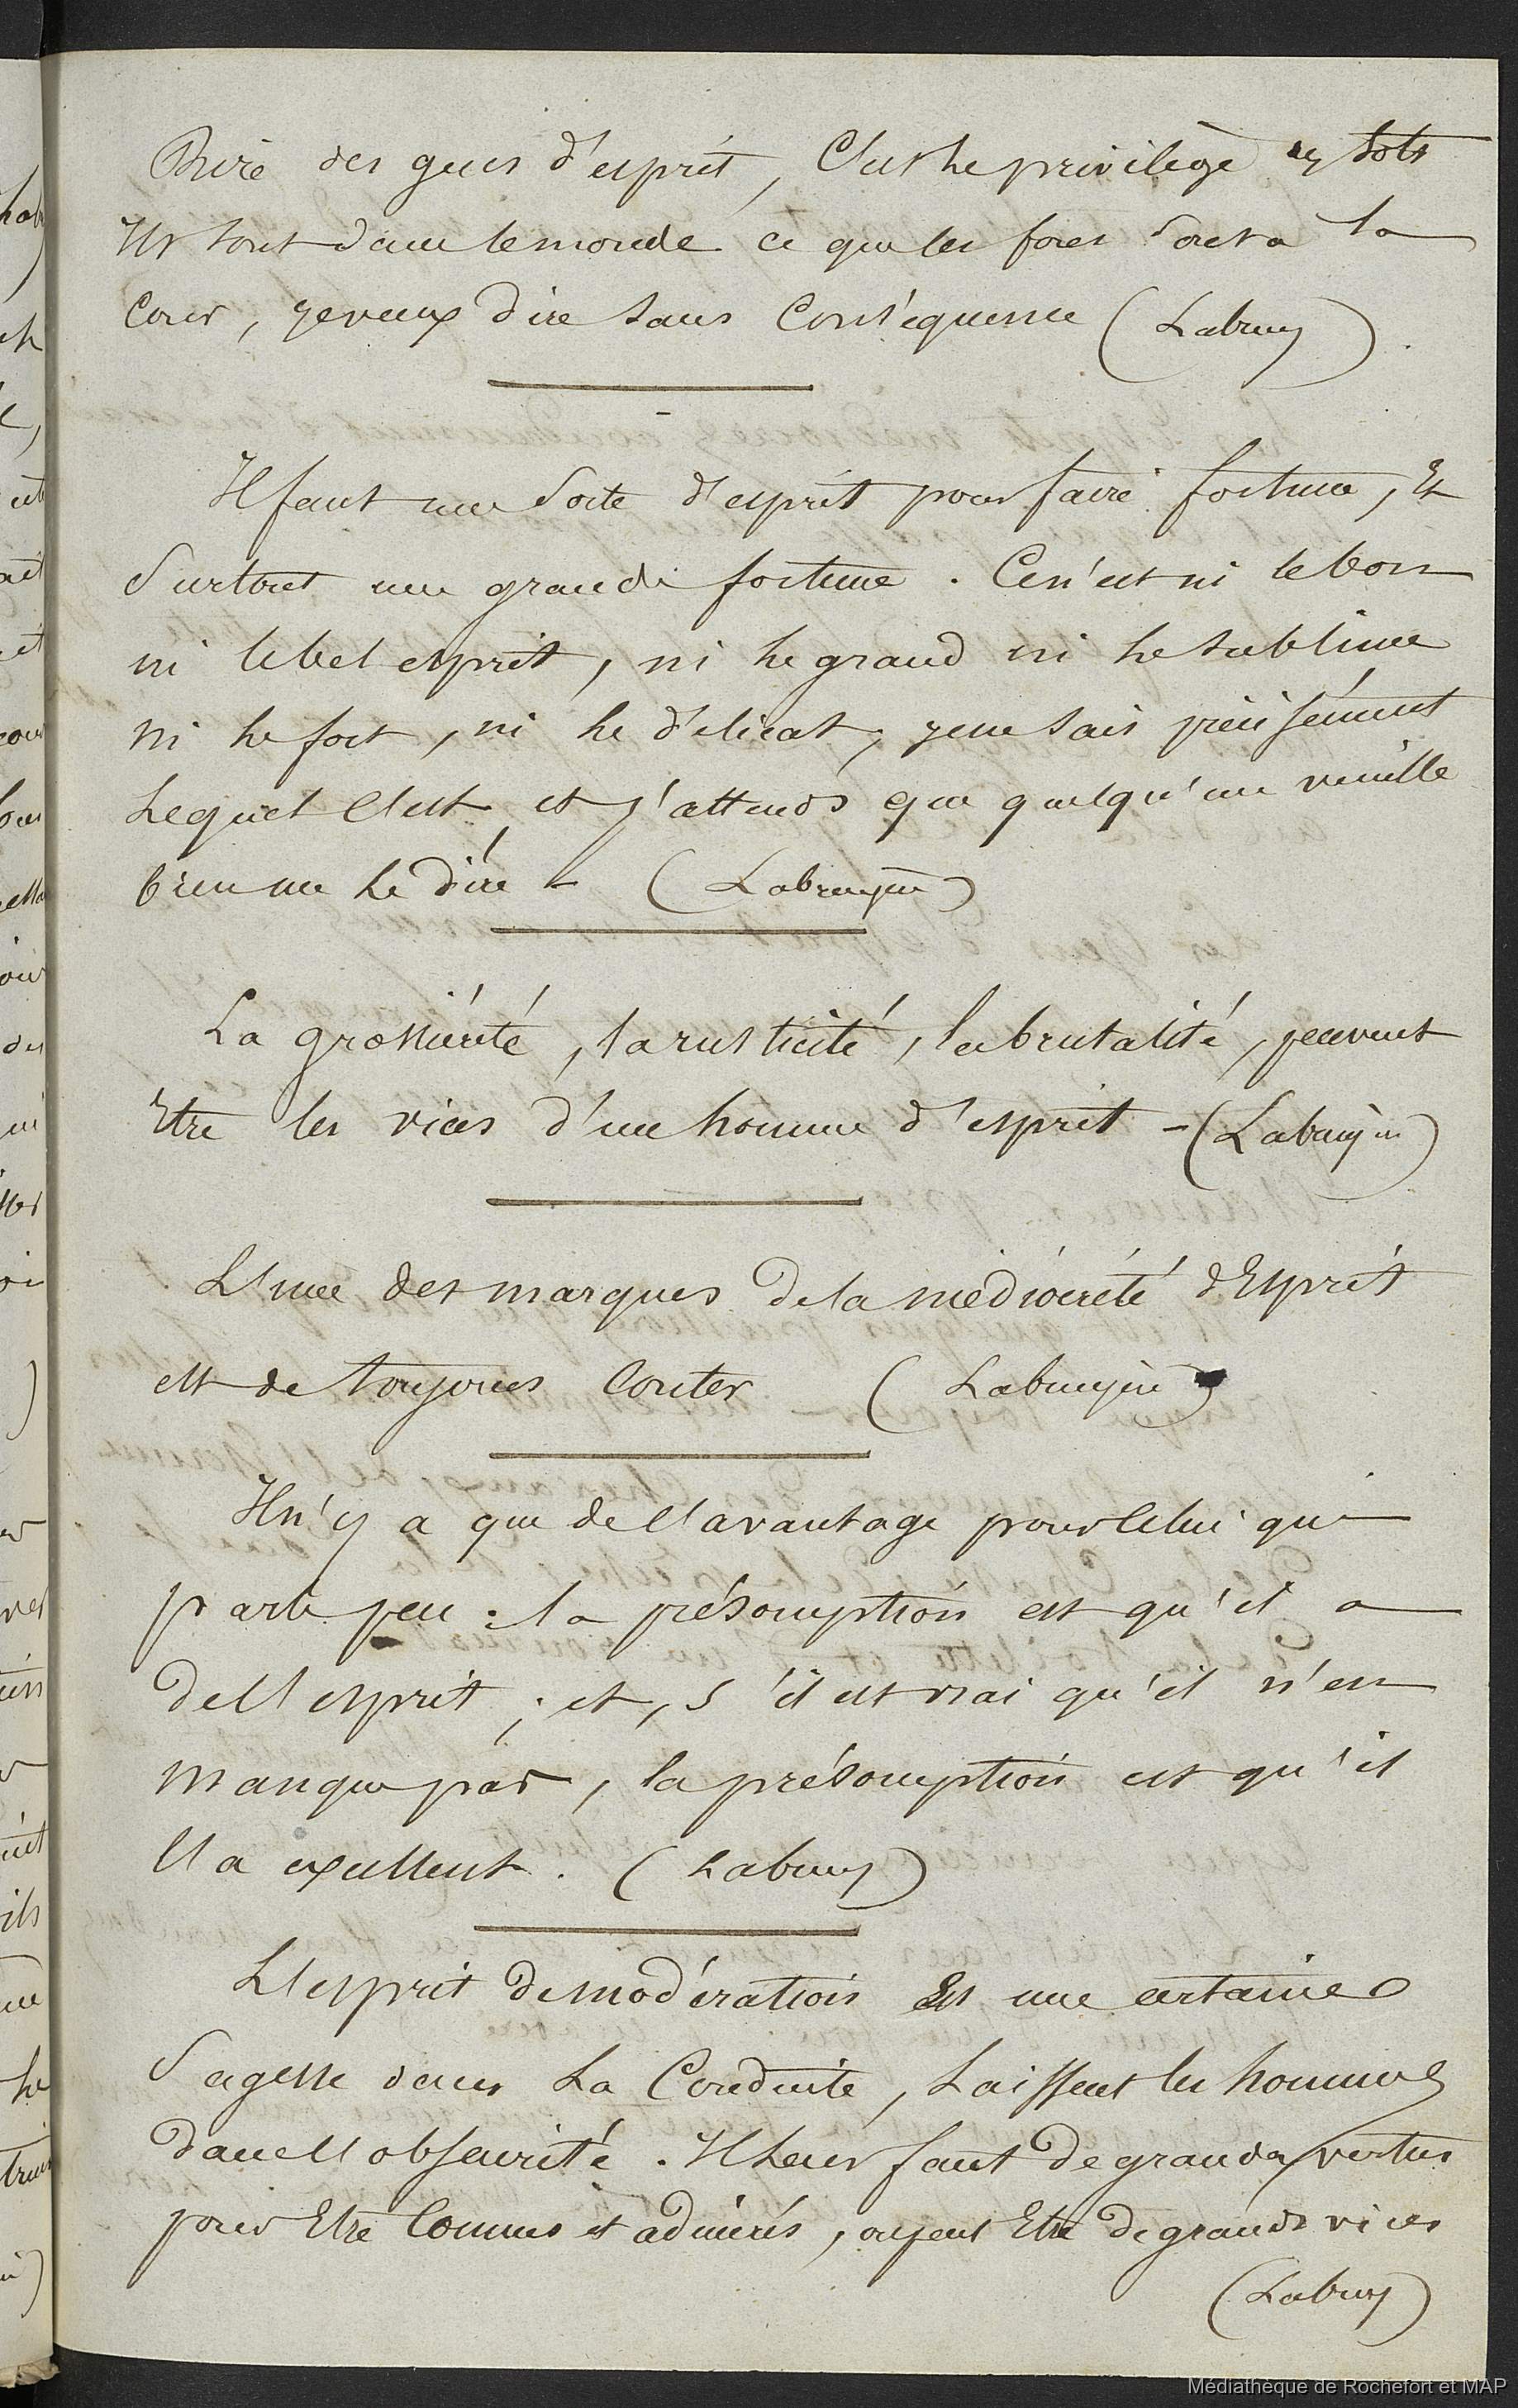 Rire des gens d'esprit, C'est le privilège des Sots
Ils sont dans le monde ce que les fous sont a la
Cour, je veux dire sans Conséquence (Labruy)
Il faut une Sorte d'esprit pour faire fortune, Et
Surtout une grande fortune. Ce n'est ni le bon
ni le bel esprit, ni le grand ni le sublime
ni le fort, ni le délicat, je ne sais précisément
Lequel C'est et j'attends que quelqu'un veuille
bien me le dire - (Labruyere)
La grossièreté, la rusticité, la brutalité, peuvent
Etre les vices d'un homme d'esprit - (Labruyere)
L'une des marques de la médiocrité d'Esprit
est de toujours Conter (Labruyere)
Il n'y a que de l'avantage pour Celui qui
parle peu : la présomption est qu'il a
de l'esprit ; et, s'il est vrai qu'il n'en
manque pas, la présomption est qu'il
l'a excellent. (Labruy)
L'esprit de modération Et une certaine
Sagesse dans La Conduite, Laissent les hommes
dans l'obscurité. Il Leur faut de grandes vertus
pour Etre Connus et admirés, ou peut Etre de grands vices
(Labruy)
Médiathèque de Rochefort et MAP